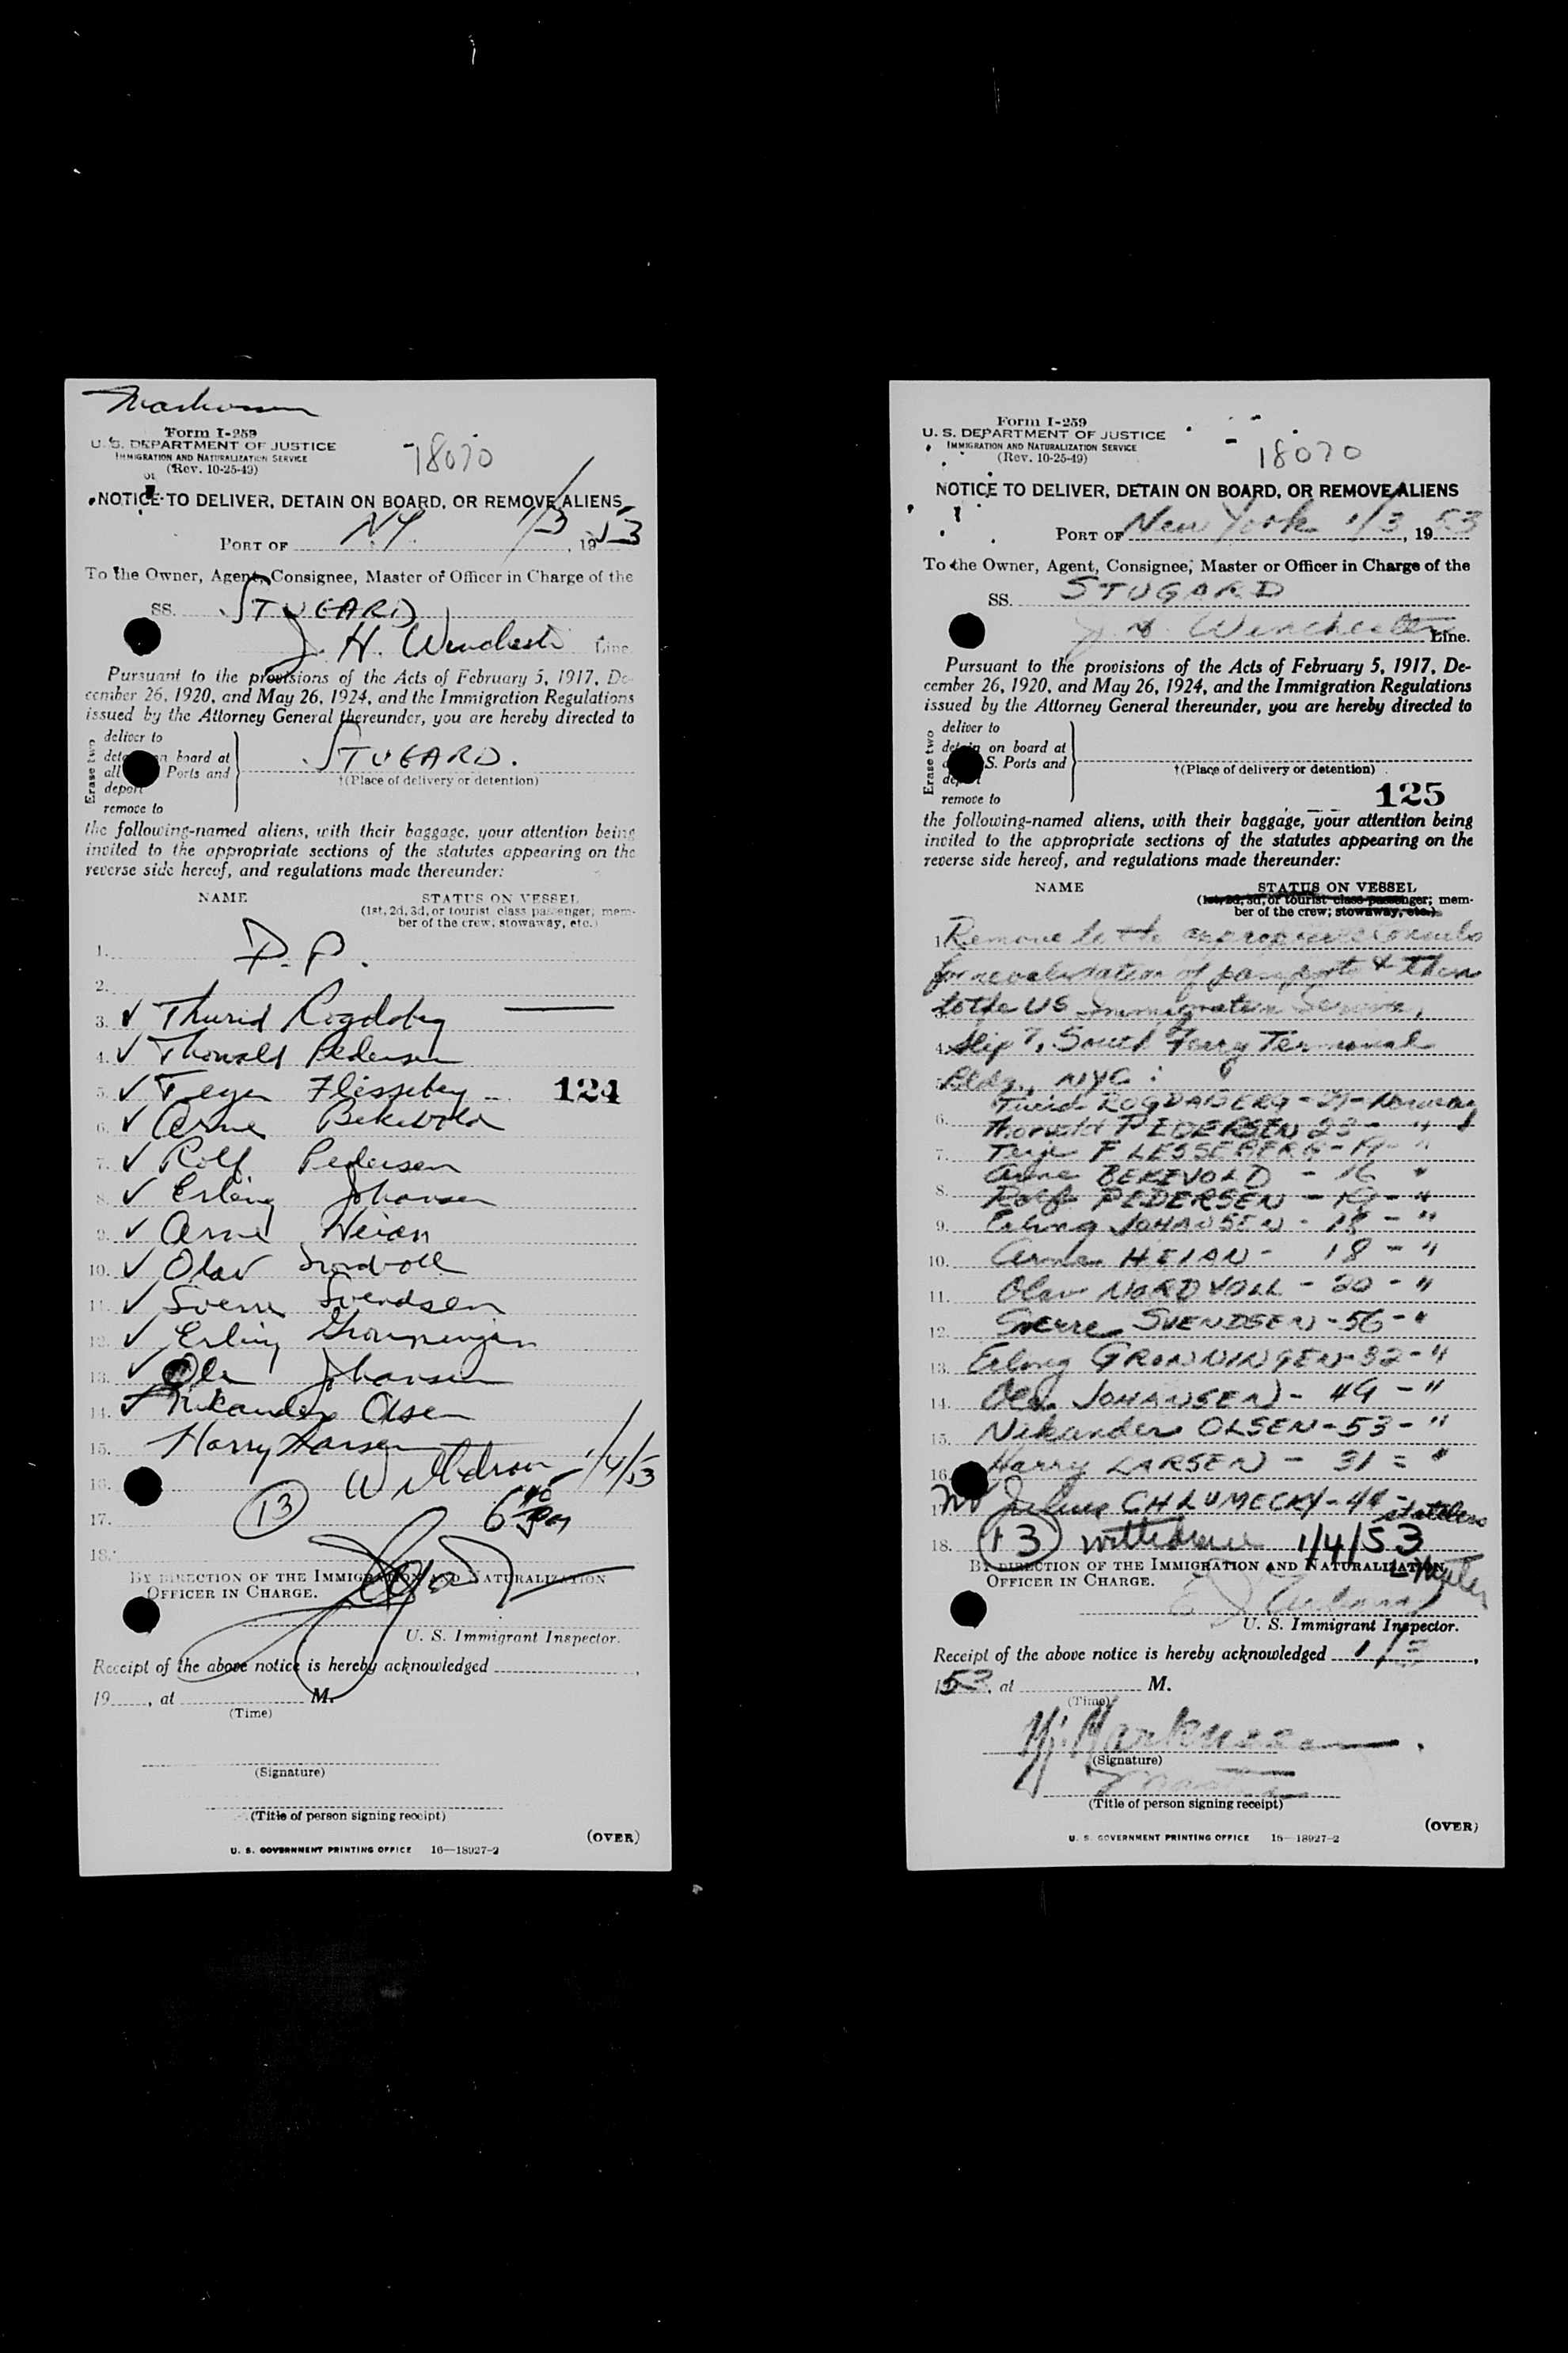 Form I-259
U. S. DEPARTMENT OF JUSTICE
IMMIGRATION AND NATURALIZATION SERVICE
(Rev. 10-25-49)
18070
NOTICE TO DELIVER, DETAIN ON BOARD, OR REMOVE ALIENS
PORT OF NY. 1/3, 1953
To the Owner, Agent, Consignee, Master or Officer in Charge of the
SS. STUGARD
J. H. Winchester Line.
Pursuant to the provisions of the Acts of February 5, 1917, De-
cember 26, 1920, and May 26, 1924, and the Immigration Regulations
issued by the Attorney General thereunder, you are hereby directed to
Erase two
deliver to
on board at
all Ports and
deport
remove to
STUGARD.
†(Place of delivery or detention)
the following-named aliens, with their baggage, your attention being
invited to the appropriate sections of the statutes appearing on the
reverse side hereof, and regulations made thereunder:
NAME STATUS ON VESSEL
(1st, 2d, 3d, or tourist class passenger; mem-
ber of the crew; stowaway, etc.)
1. D.P.
2.
3. ✓ Thurid Rogdaberg
4. ✓ Thorvald Pedersen
5. ✓ Flesseberg 124
6. ✓ Arne Bekevold
7. ✓ Rolf Pedersen
8. ✓ Erling Johansen
9. ✓ Arne Heian
10. ✓ Olav
11. ✓ Sverre Svendsen
12. ✓ Erling Gronningen
13. ✓ Ola Johansen
14. ✓ Nikander Olsen
15. Harry Larsen
16. Withdrawn 1/4/53
17. 13
18.
BY DIRECTION OF THE IMMIGRATION AND NATURALIZATION
OFFICER IN CHARGE.
U. S. Immigrant Inspector.
Receipt of the above notice is hereby acknowledged
19, at M.
(Time)
(Signature)
(Title of person signing receipt)
(OVER)
U. S. GOVERNMENT PRINTING OFFICE 16—18927-2
Form I-259
U. S. DEPARTMENT OF JUSTICE
IMMIGRATION AND NATURALIZATION SERVICE
(Rev. 10-25-49)
18070
NOTICE TO DELIVER, DETAIN ON BOARD, OR REMOVE ALIENS
PORT OF New York 1/3, 1953
To the Owner, Agent, Consignee, Master or Officer in Charge of the
SS. STUGARD
J. H. Winchester Line.
Pursuant to the provisions of the Acts of February 5, 1917, De-
cember 26, 1920, and May 26, 1924, and the Immigration Regulations
issued by the Attorney General thereunder, you are hereby directed to
Erase two
deliver to
detain on board at
S. Ports and
remove to
†(Place of delivery or detention)
125
the following-named aliens, with their baggage, your attention being
invited to the appropriate sections of the statutes appearing on the
reverse side hereof, and regulations made thereunder:
NAME STATUS ON VESSEL
(1st, 2d, 3d, or tourist class passenger; mem-
ber of the crew; stowaway, etc.)
1. Remove to the appropriate consuls
for revalidation of passports & then
to the US Immigration Service,
4. Slip 7, South Ferry Terminal
Bldg., NYC :
Turid ROGDABERG - 29 - Norway
6. Thorvald PEDERSEN 23 - "
7. Terje FLESSEBERG - 19 - "
Arne BEKEVOLD - 16 "
8. Rolf PEDERSEN - 19 - "
9. Erling JOHANSEN - 18 - "
10. Arne HEIAN - 18 - "
11. Olav NORDVOLL - 20 - "
12. Sverre SVENDSEN - 56 - "
13. Erling GRONNINGEN - 32 - "
14. Ola JOHANSEN - 49 - "
15. Nikander OLSEN - 53 - "
16. Harry LARSEN - 31 = "
17. Julius CHLUMECKY - 44 - stateless
18. 13 withdrawn 1/4/53
BY DIRECTION OF THE IMMIGRATION AND NATURALIZATION
OFFICER IN CHARGE.
U. S. Immigrant Inspector.
Receipt of the above notice is hereby acknowledged 1/3,
1953, at M.
(Time)
Markussen
(Signature)
Master
(Title of person signing receipt)
(OVER)
U. S. GOVERNMENT PRINTING OFFICE 16—18927-2